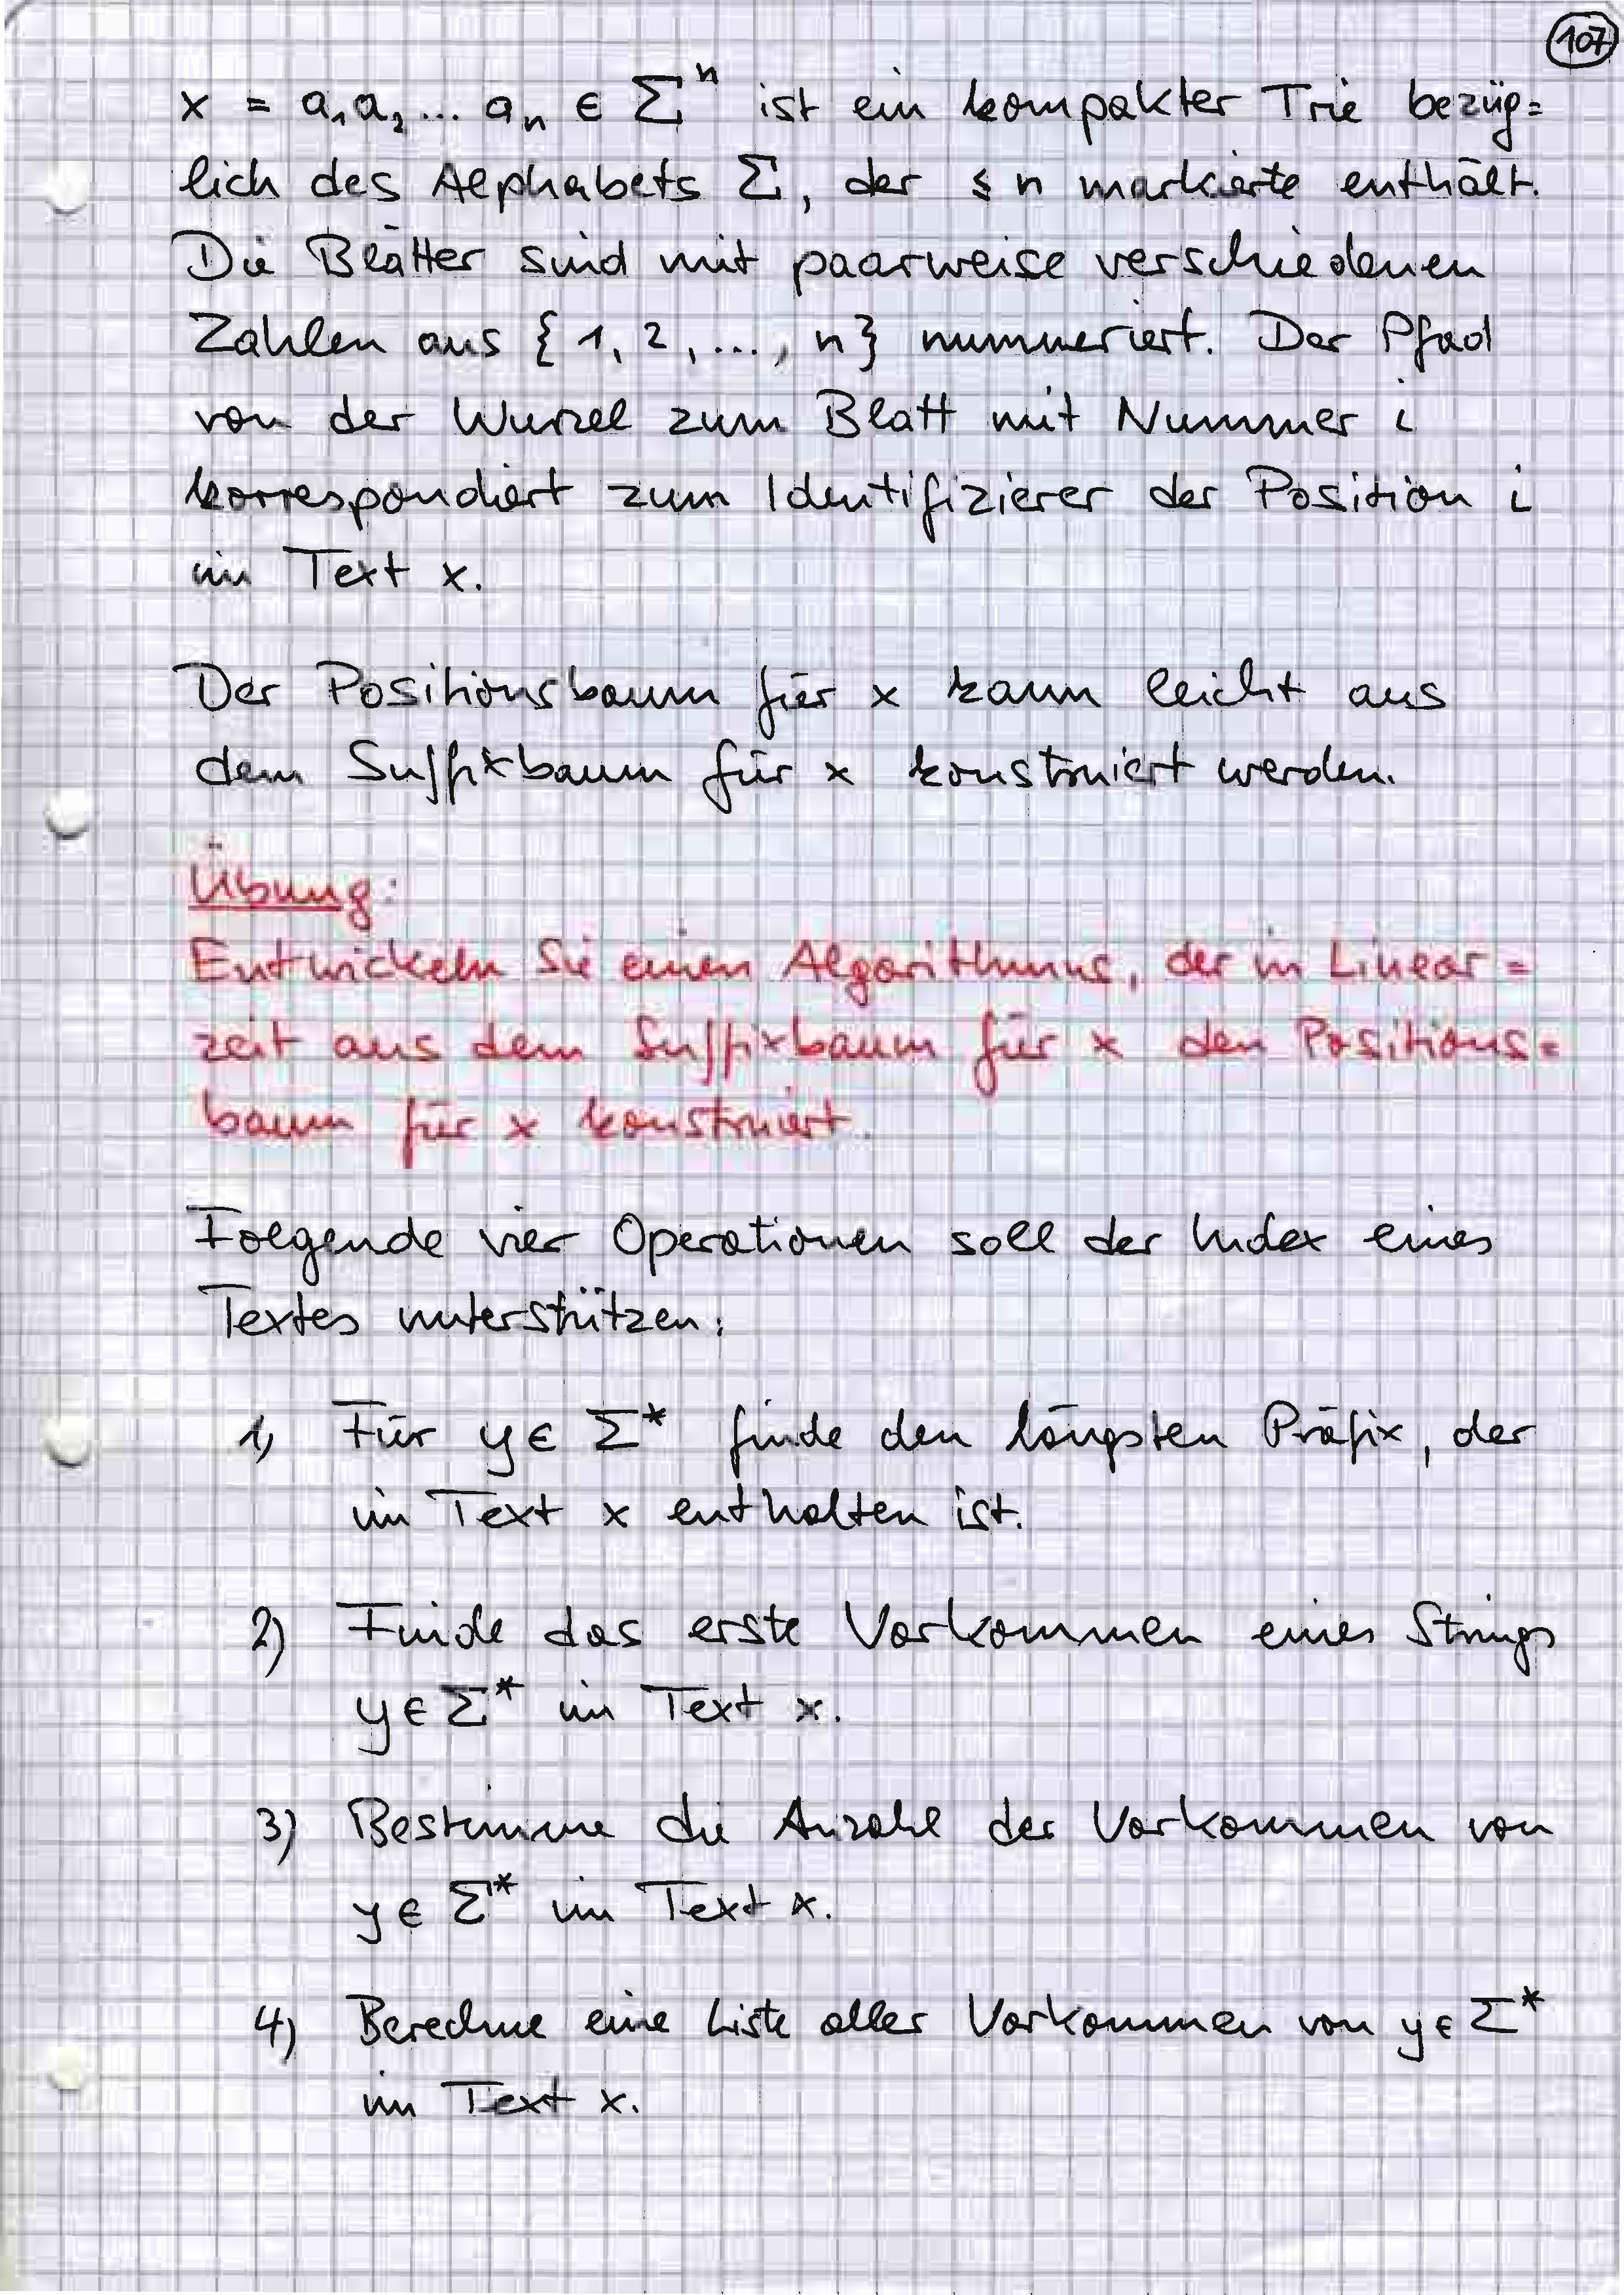 107
x = a₁a₂... aₙ ∈ Σⁿ ist ein kompakter Trie bezüg=
lich des Alphabets Σ, der ≤ n markierte enthält.
Die Blätter sind mit paarweise verschiedenen
Zahlen aus {1, 2, ..., n} nummeriert. Der Pfad
von der Wurzel zum Blatt mit Nummer i
korrespondiert zum Identifizierer der Position i
im Text x.
Der Positionsbaum für x kann leicht aus
dem Suffixbaum für x konstruiert werden.
Übung:
Entwickeln Sie einen Algorithmus, der in Linear=
zeit aus dem Suffixbaum für x den Positions=
baum für x konstruiert.
Folgende vier Operationen soll der Index eines
Textes unterstützen:
1) Für y ∈ Σ* finde den längsten Präfix, der
im Text x enthalten ist.
2) Finde das erste Vorkommen eines Strings
y ∈ Σ* im Text x.
3) Bestimme die Anzahl der Vorkommen von
y ∈ Σ* im Text x.
4) Berechne eine Liste aller Vorkommen von y ∈ Σ*
im Text x.